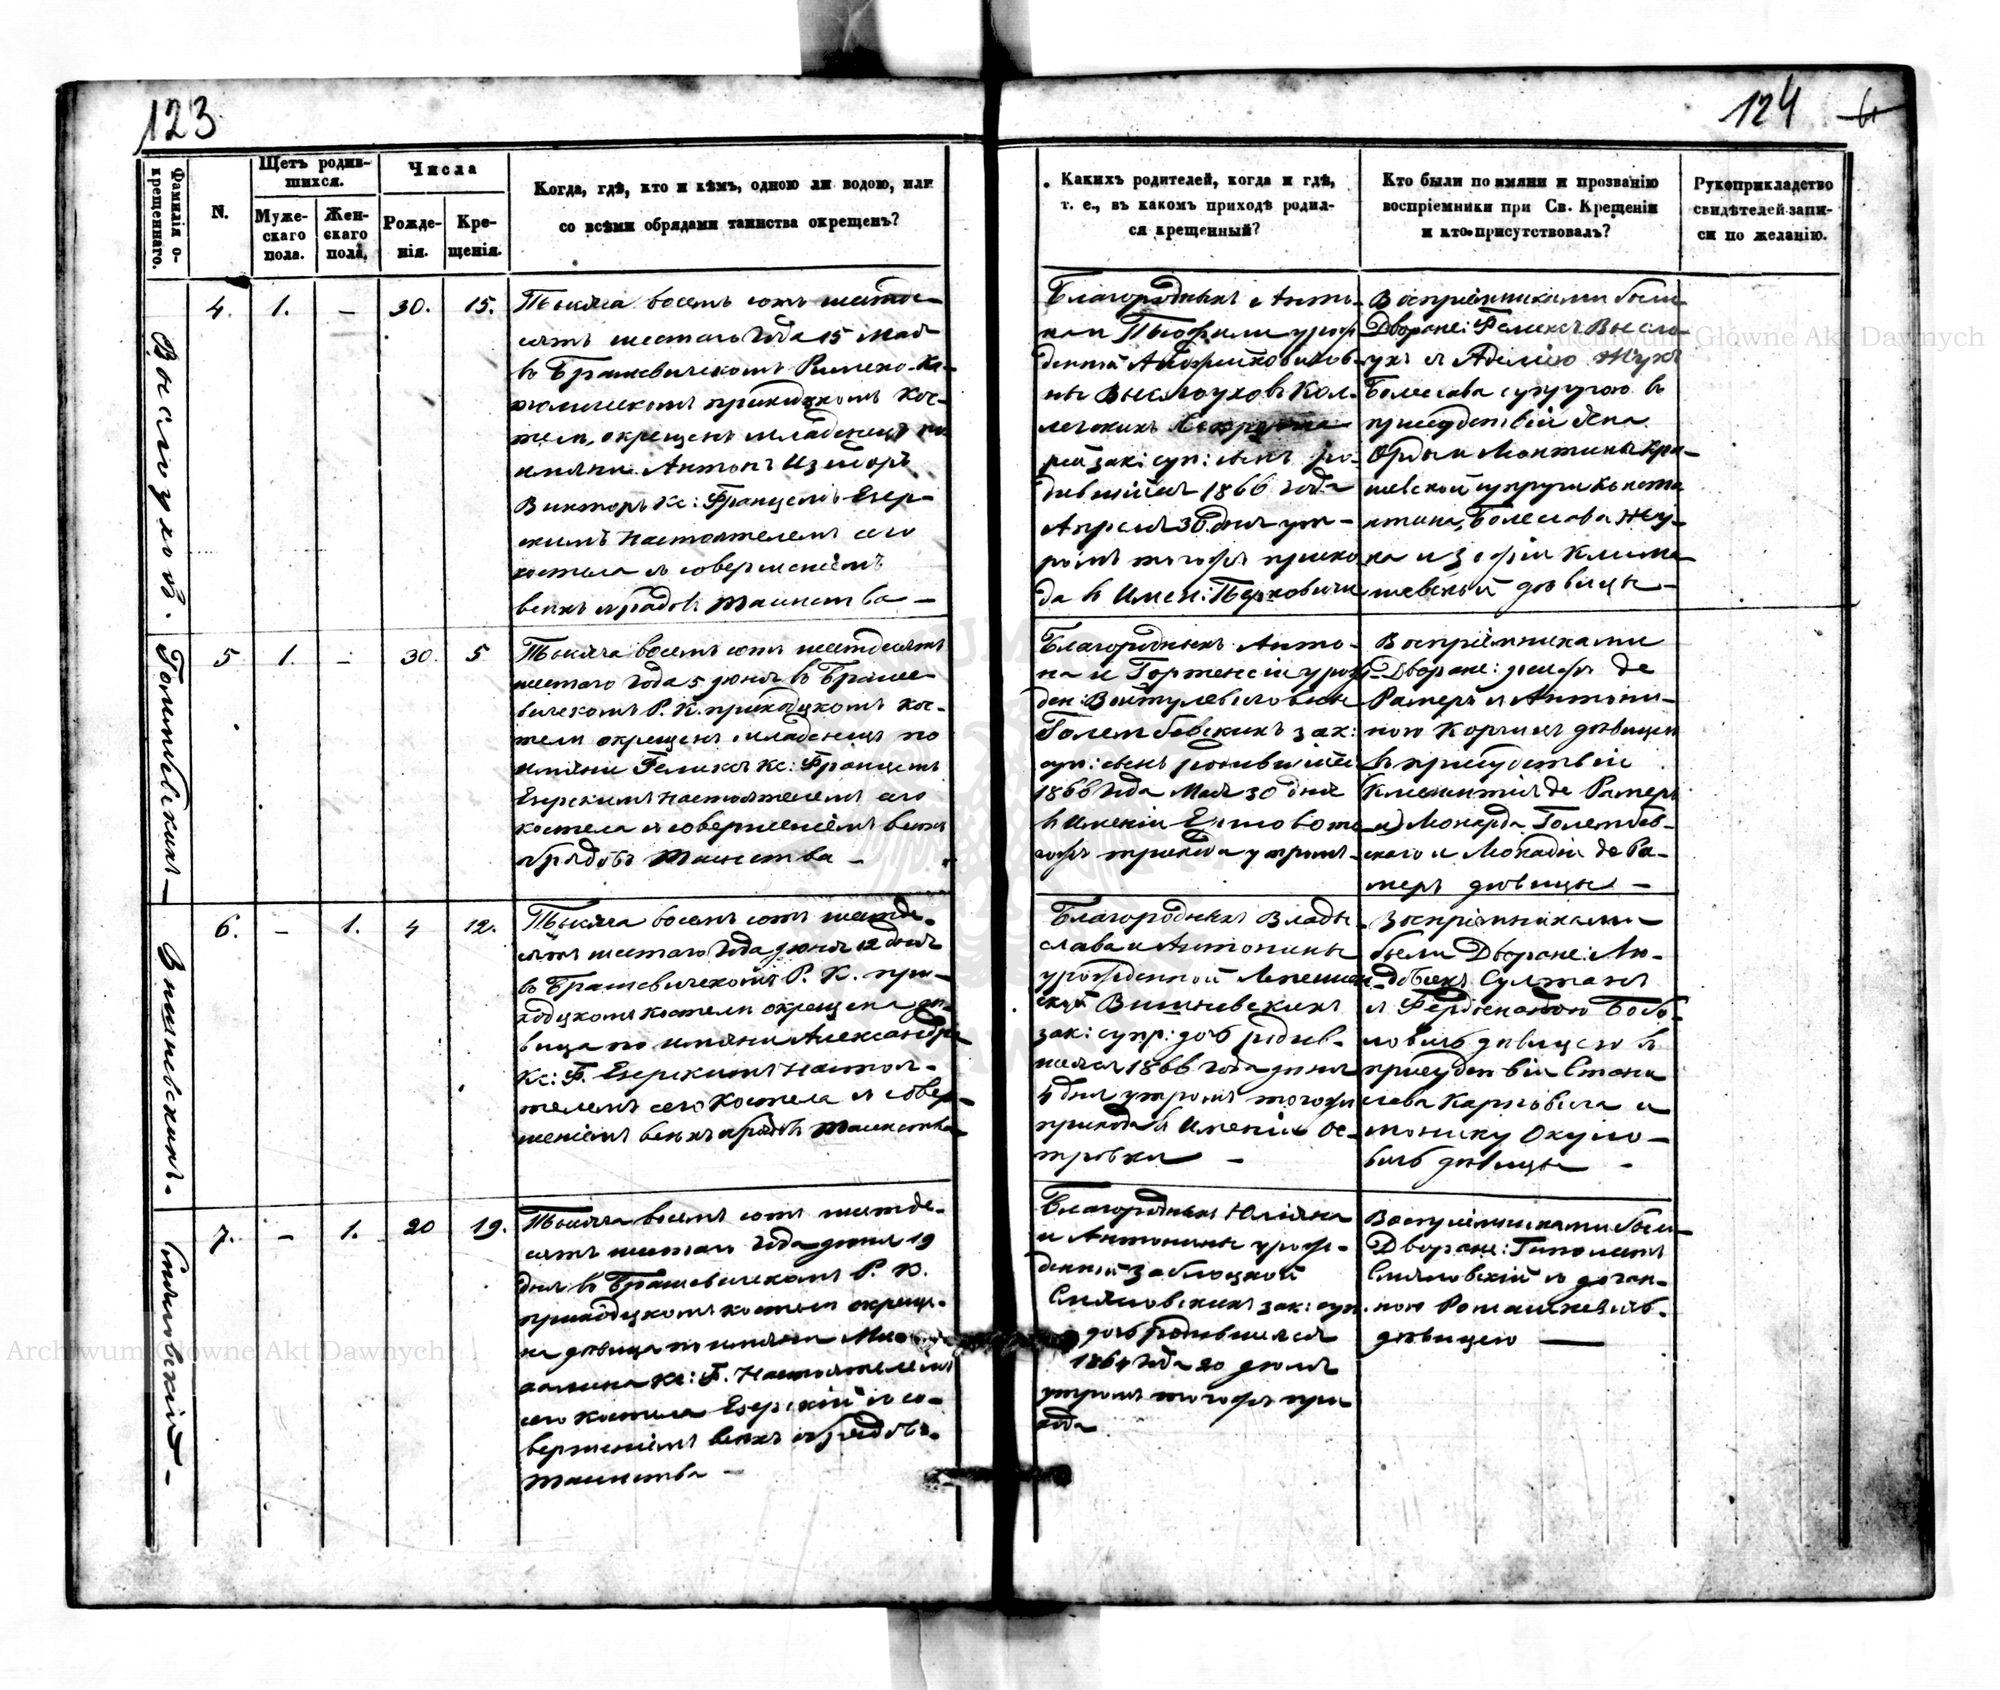 123
124
Фамилія о-
крещеннаго.
N.
Щетъ родив-
шихся.
Муже-
скаго
пола.
Жен-
скаго
пола.
Числа
Рожде-
нія.
Кре-
щенія.
Когда, гдѣ, кто и кѣмъ, одною ли водою, или
со всѣми обрядами таинства окрещенъ?
Какихъ родителей, когда и гдѣ,
т. е., въ какомъ приходѣ родил-
ся крещенный?
Кто были по имяни и прозванію
воспріемники при Св. Крещеніи
и кто присутствовалъ?
Рукоприкладство
свидѣтелей запи-
си по желанію.
Выслоуховъ.
4. 1. — 30. 15.
Тысяча восемъ сотъ шестде-
сятъ шестаго года 15 Мая
въ Брашевичскомъ Римско-Ка-
толическомъ приходскомъ Кос-
телѣ, окрещенъ младенецъ по
имяни Антонъ Изыдоръ
Викторъ Кс: Францемъ Езер-
скимъ Настоятелемъ сего
костела съ совершеніемъ
всѣхъ обрядовъ таинства —
Благородныхъ Анто-
на и Теофили урож-
денной
Выслоуховъ Кол-
лежскихъ
зак: суп: сынъ ро-
дившійся 1866 года
Апреля 30 дня ут-
ромъ тогожъ прихо
да въ Имен: Перковичи
Воспріемниками были
Дворане: Феликсъ Высло-
ухъ и Аделію Жукъ
Болеслава супругою въ
присудствіи Яна
Орды и Мартины Кра-
шевской супруги
Болеслава Жу-
ка и Зофіи Клима-
шевской дѣвицы —
Голембевскихъ —
5 1. — 30. 5
Тысяча восемъ сотъ шестдесятъ
шестаго года 5 Іюня въ Браше
вичскомъ Р. К. приходскомъ кос-
телѣ окрещенъ младенецъ по
имяни Феликсъ Кс: Францемъ
Езерскимъ Настоятелемъ сего
костела съ совершеніемъ всѣхъ
обрядовъ таинства —
Благородныхъ Анто-
на и Гортенсіи урож-
ден: Войтулевичовны
Голембевскихъ зак:
суп: сынъ родившійся
1866 года Мая 30 дня
въ Имѣніи
гожъ прихода утромъ —
Воспріемниками
Дворане: Іосифъ де
Рамеръ и Антони-
ною дѣвицею
въ присудствіи
Клементія де Рамеръ
и Голембев-
скаго и де Ра-
меръ дѣвицы —
Вишневскихъ —
6. — 1. 4 12.
Тысяча восемъ сотъ шестде-
сятъ шестаго года Іюня 12 дня
въ Брашевичскомъ Р. К. при-
ходскомъ костелѣ окрещена дѣ-
вица по имяни Александра
Кс: Ф. Езерскимъ Настоя-
телемъ сего Костела съ совер-
шеніемъ всѣхъ обрядовъ таинства
Благородныхъ Влады
слава и Антонины
урожденной
Вишневскихъ
зак: супр: дочь родив-
шаяся 1866 года Іюня
4 дня утромъ тогожъ
прихода въ Имѣніи Ос-
тровки —
Воспріемниками
были Дворане: Лю-
двикъ Султанъ
и Фердинандою Бобо-
ловичъ дѣвицею въ
присудствіи Стани
слава Карповича и
Монику Окуло-
вичъ дѣвицы —
Смяловскій —
7. — 1. 20 19.
Тысяча восемъ сотъ шестде-
сятъ шестаго года Іюня 19
дня въ Брашевичскомъ Р. К.
приходскомъ костелѣ окреще-
на дѣвица по имяни
Кс: Ф. Настоятелемъ
сего костела Езерскій съ со-
вершеніемъ всѣхъ обрядовъ
таинства —
Благородныхъ Юліяна
и Антонины урож-
денной Заблоцкой
Смяловскихъ зак: суп.
дочь родившаяся
1864 года 20 Іюля
утромъ тогожъ при
хода
Воспріемниками были
Дворане: Гиполитъ
Смяловскій съ
ною Ромашкевичъ
дѣвицею —
Archiwum Główne Akt Dawnych
Archiwum Główne Akt Dawnych